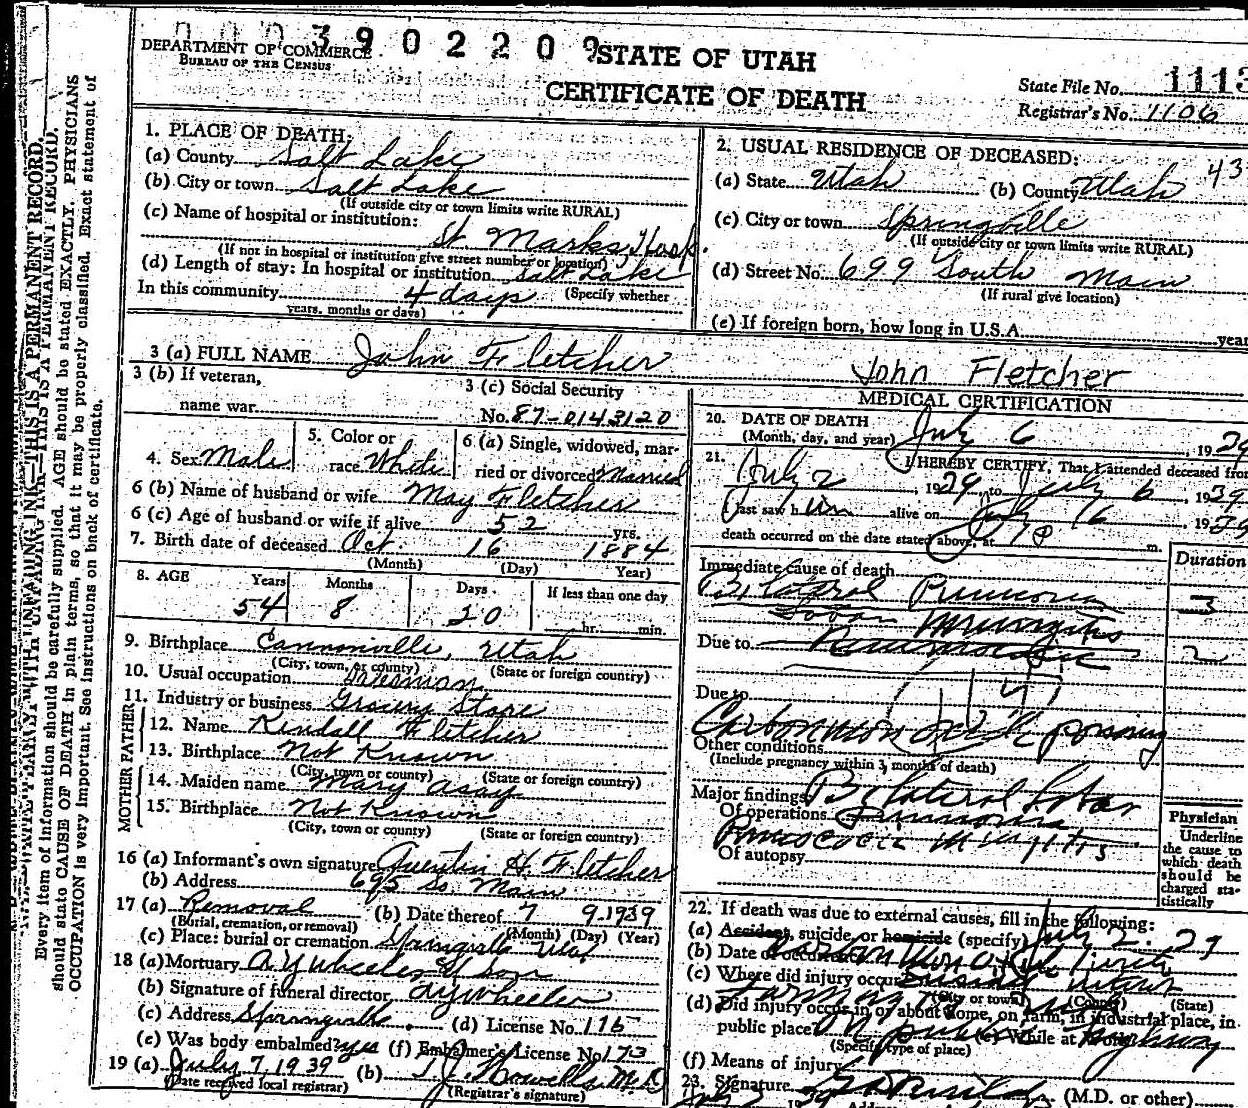 0003902209
DEPARTMENT OF COMMERCE
BUREAU OF THE CENSUS
STATE OF UTAH
CERTIFICATE OF DEATH
State File No. 1113
Registrar's No. 1106
1. PLACE OF DEATH:
(a) County Salt Lake
(b) City or town Salt Lake
(If outside city or town limits write RURAL)
(c) Name of hospital or institution:
St. Marks Hosp.
(If not in hospital or institution give street number or location)
(d) Length of stay: In hospital or institution Salt Lake
In this community 4 days (Specify whether
years, months or days)
2. USUAL RESIDENCE OF DECEASED: 43
(a) State Utah (b) County Utah
(c) City or town Springville
(If outside city or town limits write RURAL)
(d) Street No. 699 South Main
(If rural give location)
(e) If foreign born, how long in U.S.A. year
3 (a) FULL NAME John Fletcher John Fletcher
3 (b) If veteran,
name war
3 (c) Social Security
No. 87-0143120
4. Sex Male
5. Color or
race White
6 (a) Single, widowed, mar-
ried or divorced Married
6 (b) Name of husband or wife May Fletcher
6 (c) Age of husband or wife if alive 52 yrs.
7. Birth date of deceased Oct. 16 1884
(Month) (Day) Year)
8. AGE Years Months Days If less than one day
54 8 20 hr. min.
9. Birthplace Cannonville, Utah
(City, town, or county) (State or foreign country)
10. Usual occupation Salesman
11. Industry or business Grocery Store
FATHER
12. Name Kindall Fletcher
13. Birthplace Not Known
(City, town or county) (State or foreign country)
MOTHER
14. Maiden name Mary Asay
15. Birthplace Not Known
(City, town or county) (State or foreign country)
16 (a) Informant's own signature Quentin H. Fletcher
(b) Address 695 So. Main
17 (a) Removal (b) Date thereof 7 9 1939
(Burial, cremation, or removal) (Month) (Day) (Year)
(c) Place: burial or cremation Springville Utah
18 (a) Mortuary A Y Wheeler & Son
(b) Signature of funeral director AY Wheeler
(c) Address Springville. (d) License No. 115
(e) Was body embalmed? yes (f) Embalmer's License No. 173
19 (a) July 7, 1939 (b)
(Date received local registrar) (Registrar's signature)
MEDICAL CERTIFICATION
20. DATE OF DEATH
(Month, day, and year) July 6, 1939
21. I HEREBY CERTIFY, That I attended deceased from
July 2, 1939, to July 6, 1939
I last saw him alive on July 16, 1939
death occurred on the date stated above, at m.
Duration
Immediate cause of death
Bilateral Pneumonia 3
Lobar Meningitis
Due to 2
Due to
Carbon mon poisoning
Other conditions
(Include pregnancy within 3 months of death)
Major findings: Bilateral Lobar
Of operations Pneumonia
Of autopsy
Physician
Underline
the cause to
which death
should be
charged sta-
tistically
22. If death was due to external causes, fill in the following:
(a) Accident, suicide, or homicide (specify) July 2. 39
(b) Date of occurrence
(c) Where did injury occur
(City or town) (County) (State)
(d) Did injury occur in or about home, on farm, in industrial place, in
public place? On public highway
(Specify type of place) (e) While at work
(f) Means of injury
23. Signature (M.D. or other)
WRITE PLAINLY, WITH UNFADING INK—THIS IS A PERMANENT RECORD.
Every item of information should be carefully supplied. AGE should be stated EXACTLY. PHYSICIANS
should state CAUSE OF DEATH in plain terms, so that it may be properly classified. Exact statement of
OCCUPATION is very important. See instructions on back of certificate.